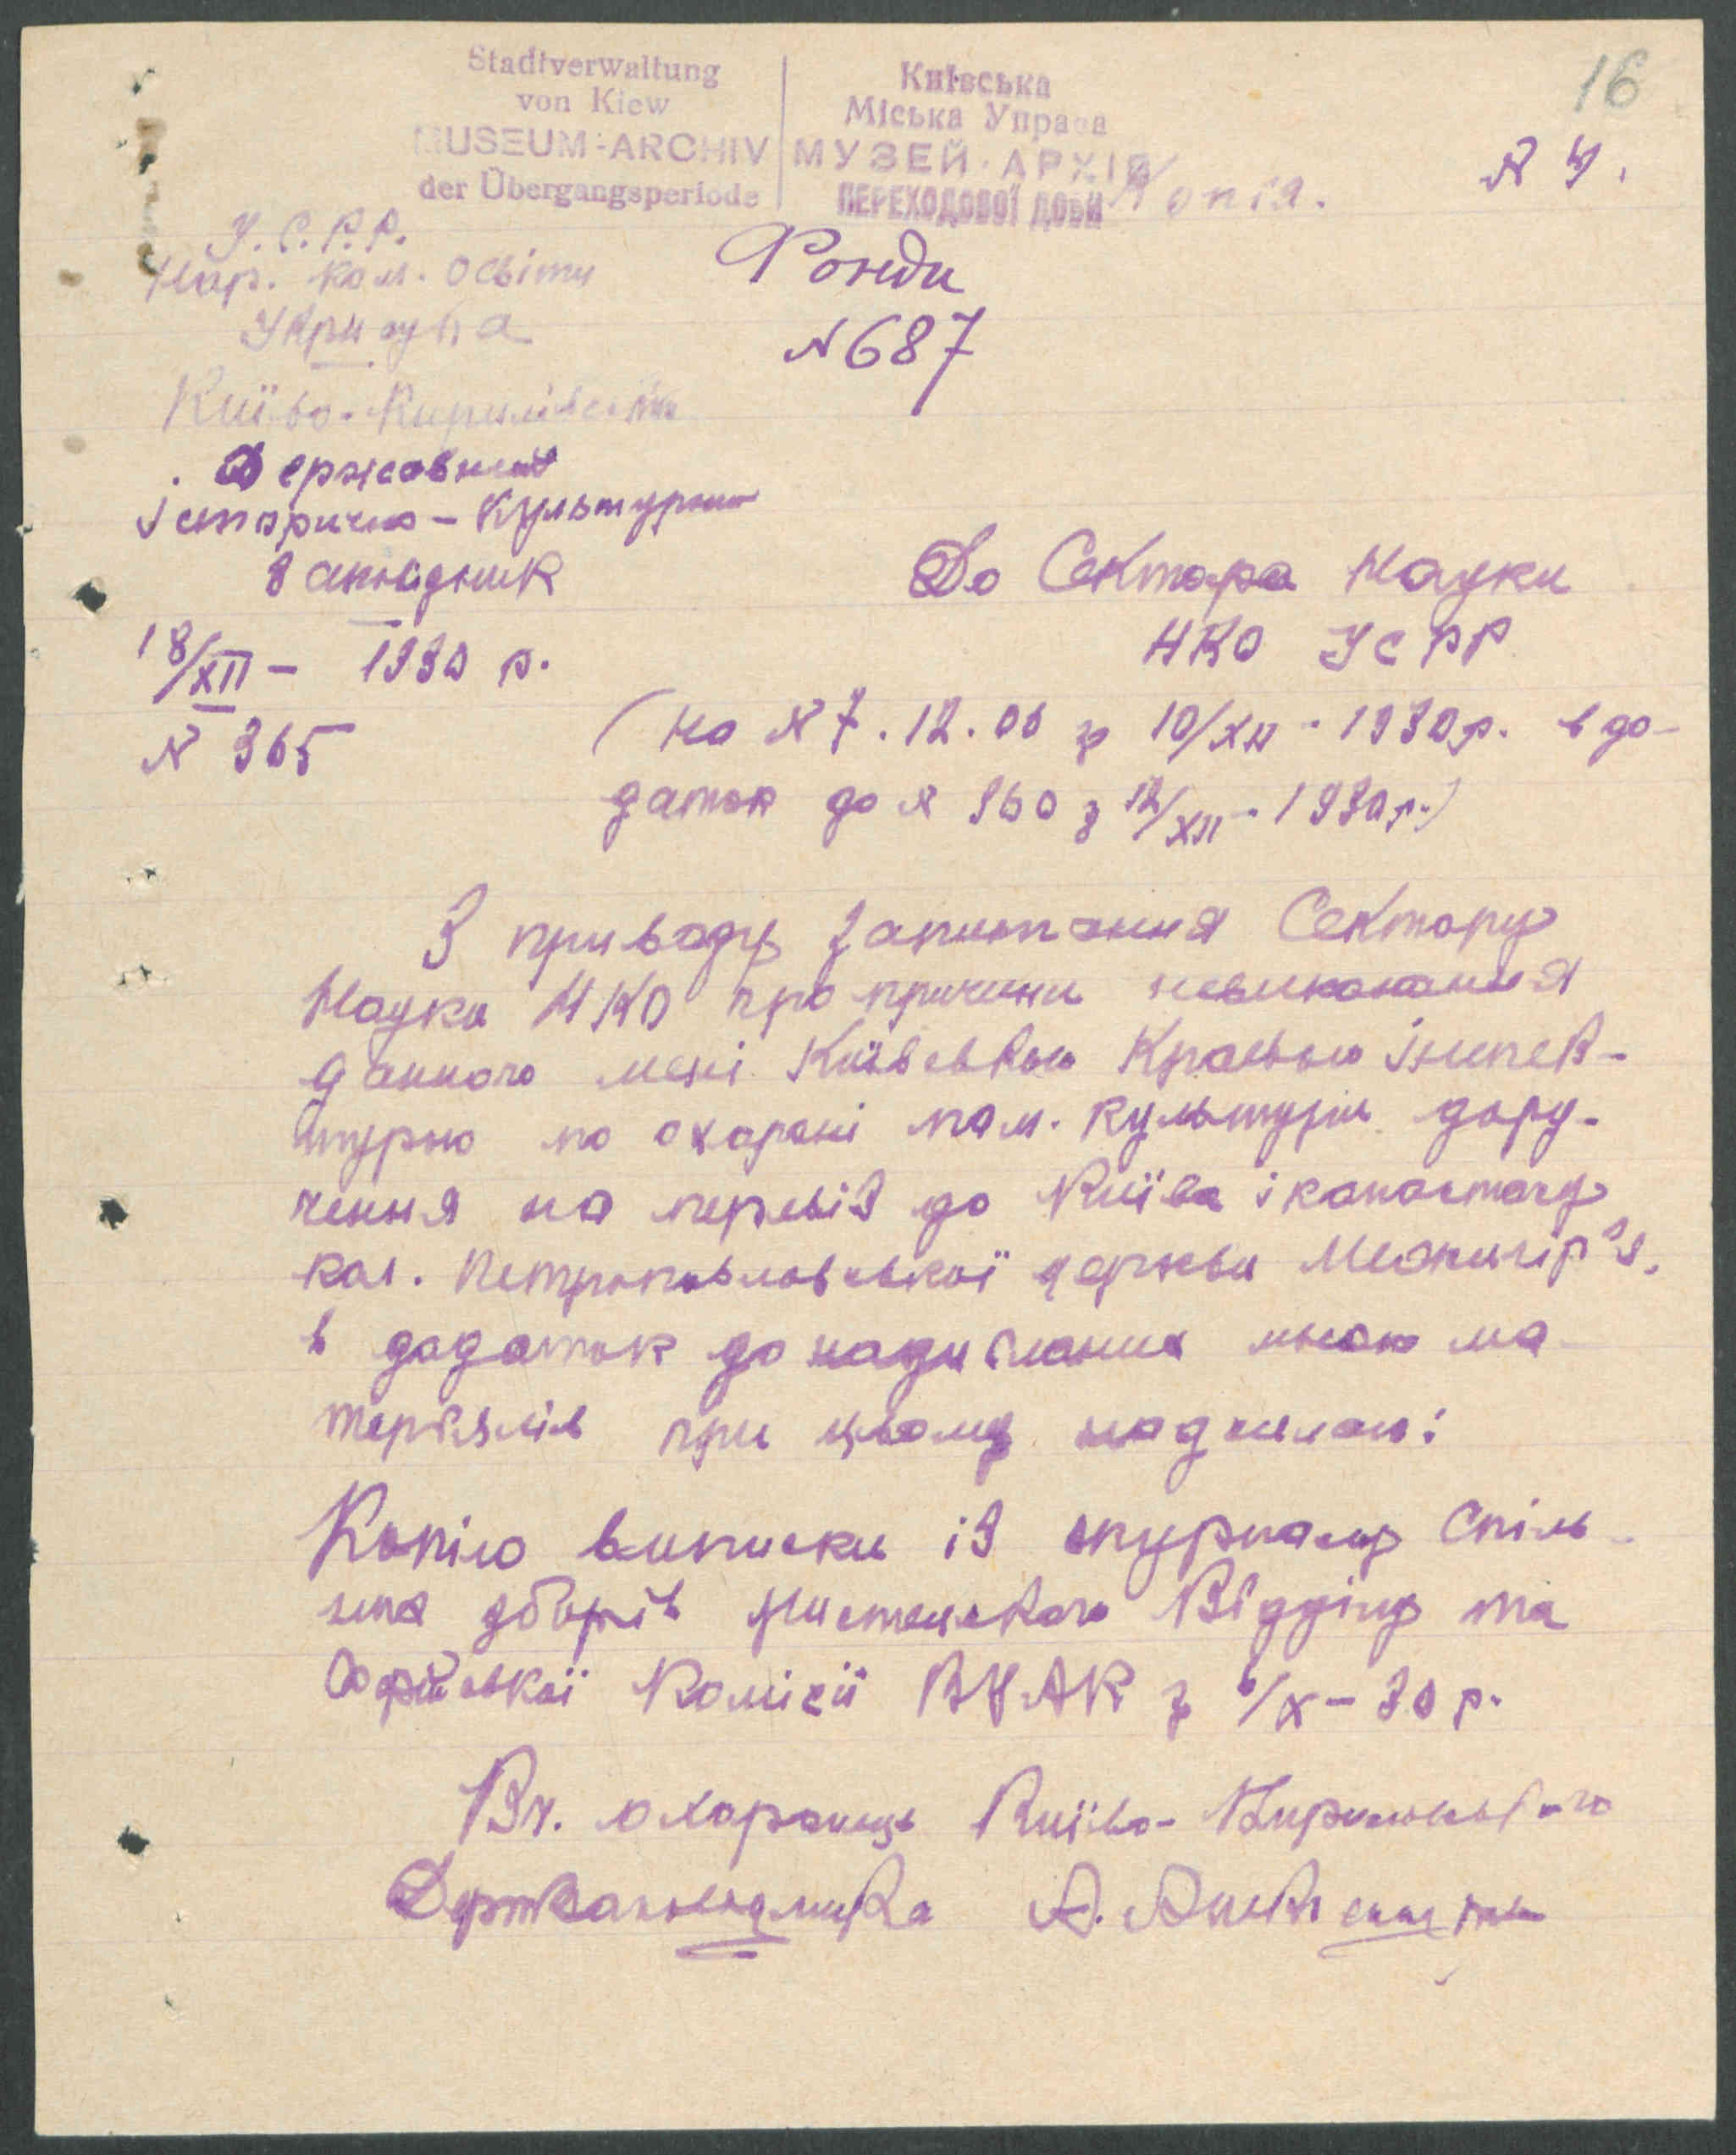 Stadtverwaltung
von Kiew
MUSEUM-ARCHIV
der Übergangsperiode
Київська
Міська Управа
МУЗЕЙ-АРХІВ
ПЕРЕХОДОВОЇ ДОБИ
16
N 4.
Копія.
У.С.Р.Р.
Нар. Ком. Освіти
Укрнаука
Фонди
N 687
Київо-Кирилівський
Державний
Історично-Культурний
Заповідник
18/XII - 1930 р.
N 365
До Сектора Науки
НКО УСРР
(на N 7.12.06 з 10/XII - 1930 р. в до-
даток до N 360 з 12/XII - 1930 р.)
З приводу запитання Сектору
Науки НКО про причини невиконання
данного мені Київською Краєвою Інспек-
турою по охороні пам. культури дору-
чення на перевіз до Київа іконостасу
кол. Петропавловської церкви Межигір'я,
в додаток до надісланих мною ма-
теріялів при цьому надсилаю:
Копію виписки із журналу Спіль-
них зборів Мистецького Відділу та
Софійської Комісії ВУАК з 6/X - 30 р.
Вч. охоронець Київо-Кирилівського
Держзаповідника А.